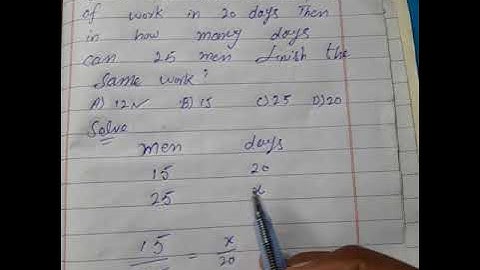 of work in 20 days Then
in how money days
can 25 men finish the
same work?
A) 12 B) 15 C) 25 D) 20
Solve
men days
15 20
25 x
15 = x
20